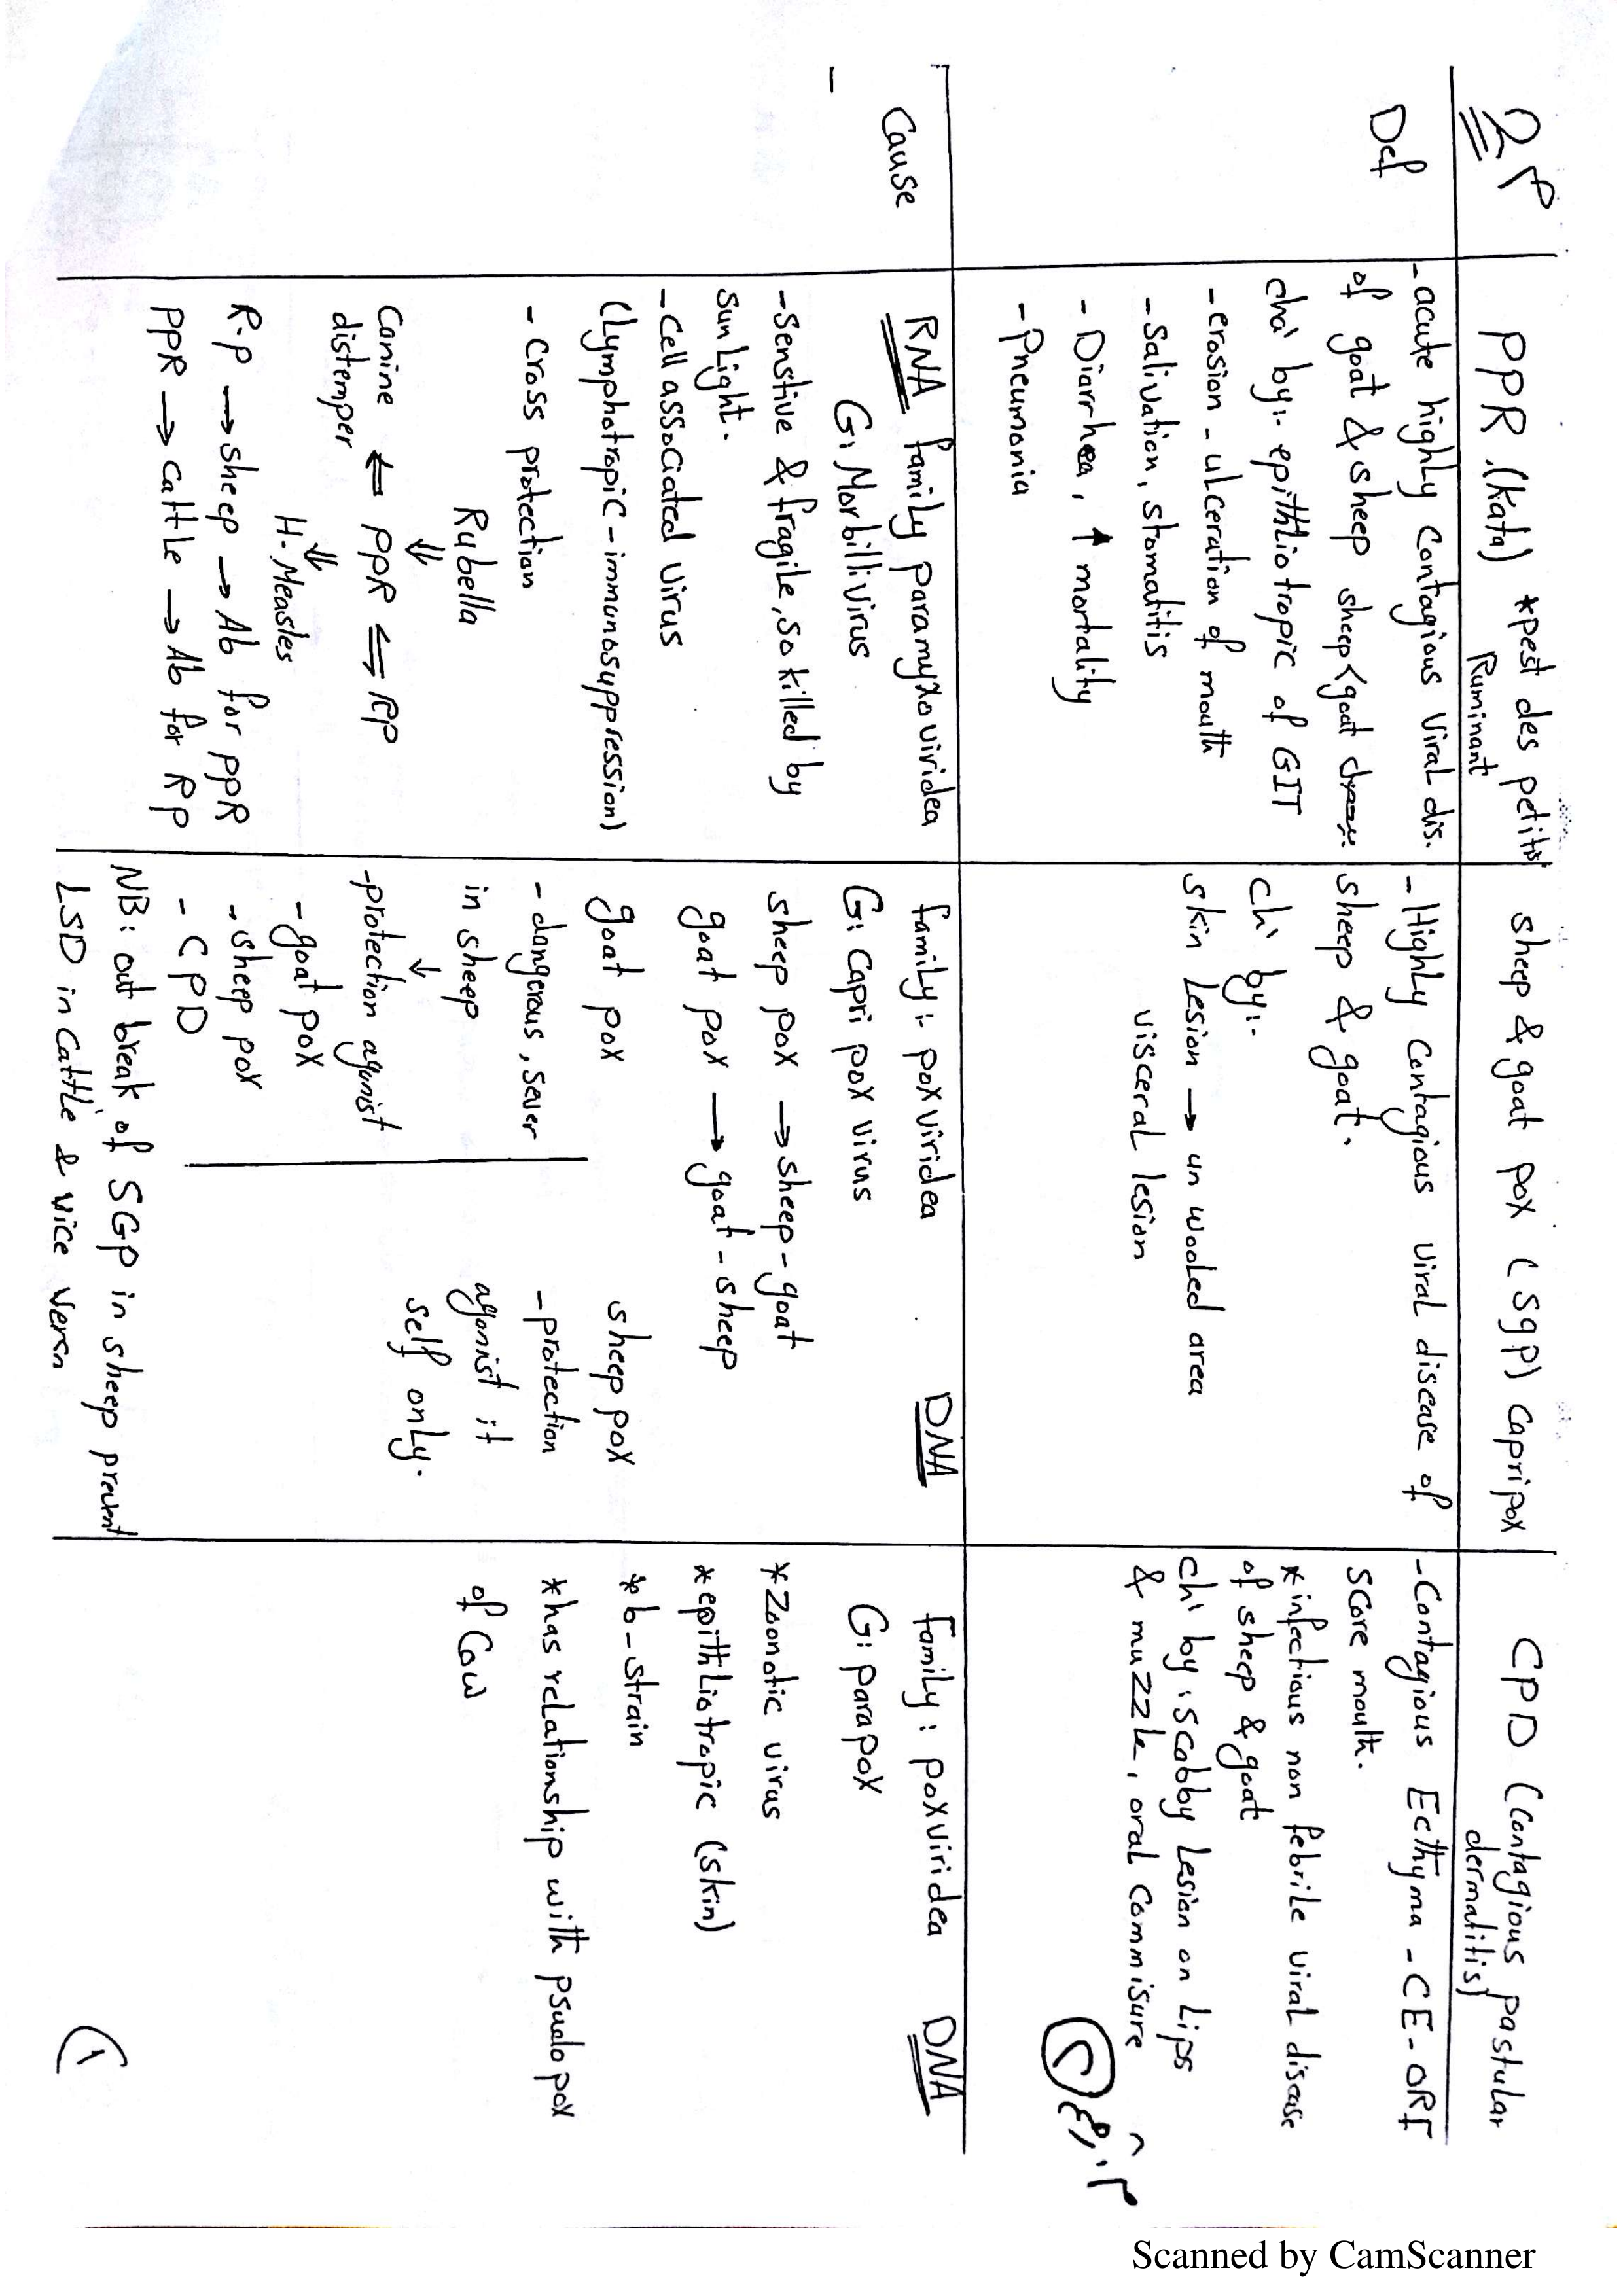 PPR (Kata) *pest des petitis
Ruminant
sheep & goat pox (SGP) Capripox
CPD (Contagious pastular
dermatitis)
Def
-acute highly Contagious Viral dis.
of goat & sheep sheep<goat
cha' by:- epithliotropic of GIT
-erosion-ulceration of mouth
-Salivation, stomatitis
-Diarrhea, ↑ mortality
-Pneumonia
-Highly Contagious Viral disease of
sheep & goat.
ch' by:-
skin Lesion → un wooled area
visceral lesion
-Contagious Ecthyma -CE-ORF
score mouth.
*infectious non febrile viral disease
of sheep & goat
ch' by: scabby Lesion on Lips
& muzzle, oral Commisure
Cause
RNA family paramyxoviridea
G: Morbillivirus
-Senstive & fragile, so killed by
sun Light.
-Cell associated virus
(Lymphotropic-immunosuppression)
-Cross protection
Rubella
⇓
Canine ⇐ PPR ⇐ RP
distemper
⇓
H-Measles
R.P → sheep → Ab for PPR
PPR → Cattle → Ab for RP
family:- poxviridea DNA
G: Capri pox virus
sheep pox → sheep-goat
goat pox → goat-sheep
goat pox
-dangerous, sever
in sheep
-protection agonist
↓
-goat pox
-sheep pox
-CPD
sheep pox
-protection
agonist it
self only.
NB: out break of SGP in sheep prevent
LSD in Cattle & vice versa
family: poxviridea DNA
G: parapox
*Zoonotic virus
*epithliotropic (skin)
*b-strain
*has relationship with psudopox
of Cow
Scanned by CamScanner